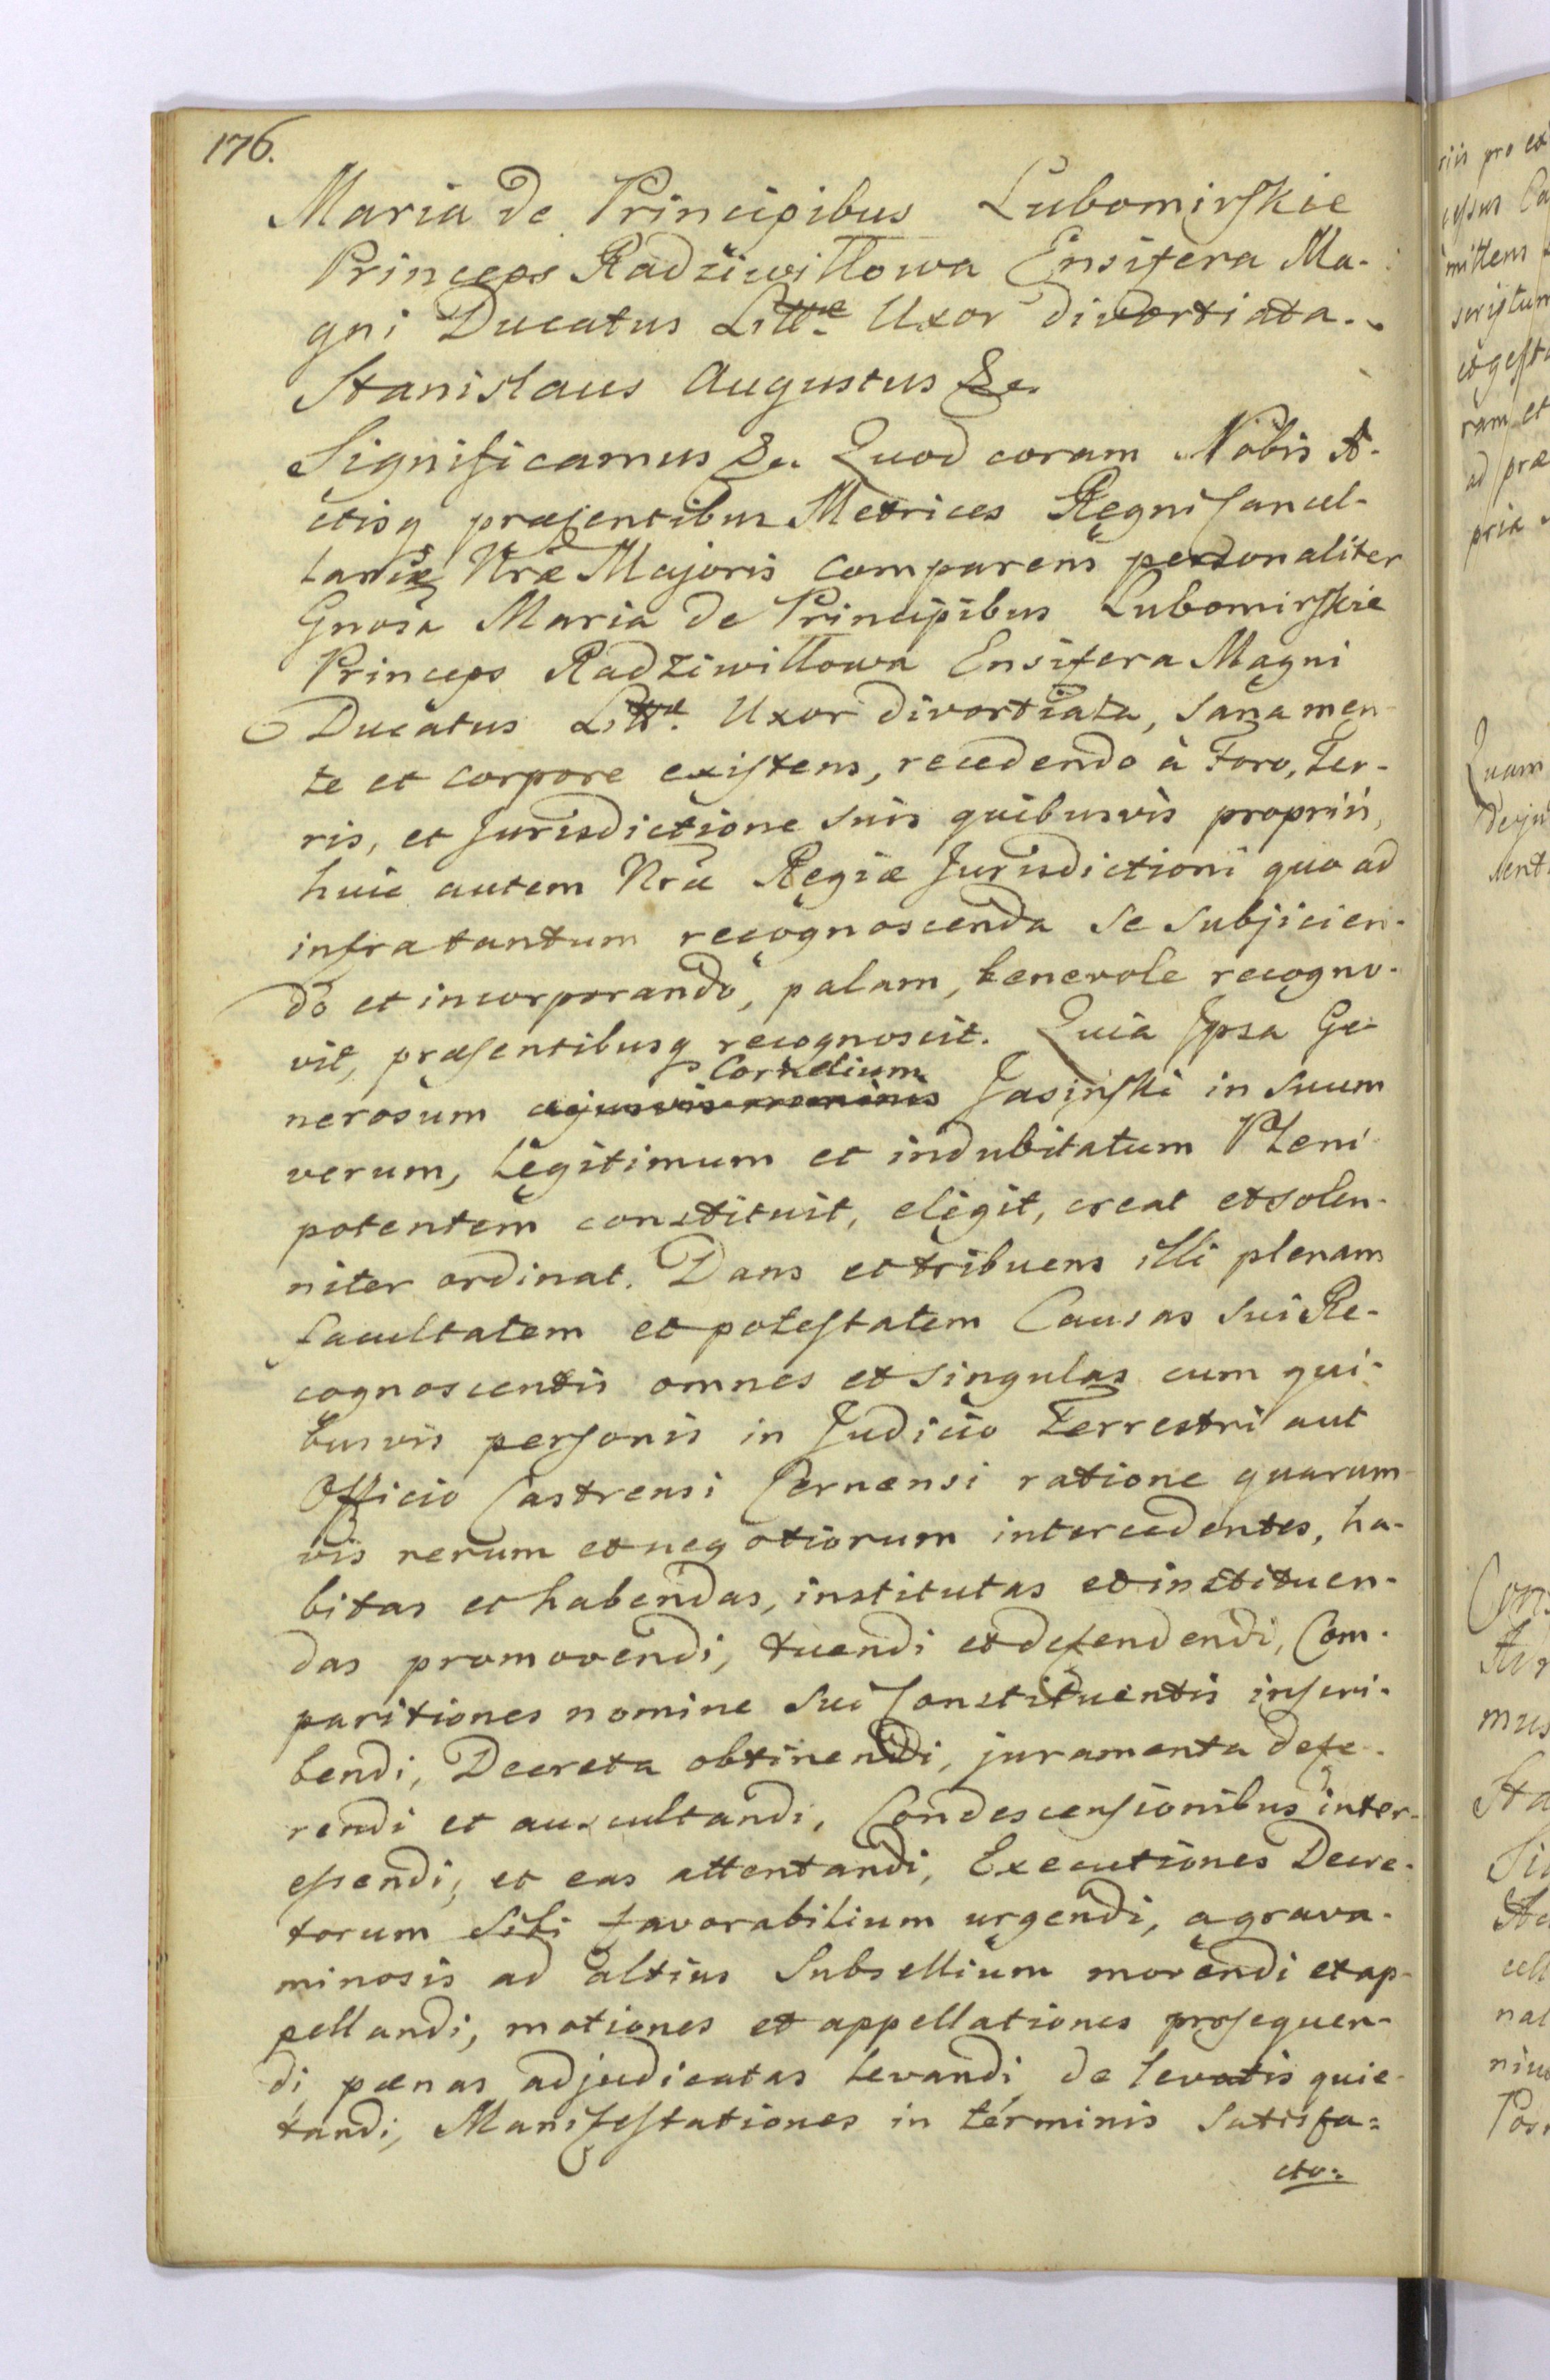 176.
Maria de Principibus Lubomirskie
Princeps Radziwiłłowa Ensifera Ma-
gni Ducatus Littuæ Uxor divortiata.
Stanislaus Augustus &c.
Significamus &c. Quod coram Nobis A-
ctisq præsentibus Metrices Regni Cancel-
lariæ Nræ Majoris comparens personaliter
Gnosa Maria de Principibus Lubomirskie
Princeps Radziwiłłowa Ensifera Magni
Ducatus Littuæ Uxor divortiata, sana men-
te et corpore existens, recedendo à Foro, Ter-
ris, et Jurisdictione suis quibusvis propriis,
huic autem Nræ Regiæ Jurisdictioni quo ad
infra tantum recognoscenda se subjicien-
do et incorporando, palam, benevole recogno-
vit, præsentibusq recognoscit. Quia Ipsa Ge-
Cornelium
nerosum cujusvis nominis Jasiński in suum
verum, legitimum et indubitatum Pleni-
potentem constituit, eligit, creat et solen-
niter ordinat. Dans et tribuens illi plenam
facultatem et potestatem Causas sui Re-
cognoscentis omnes et singulas cum qui-
busvis personis in Judicio Terrestri aut
Officio Castrensi Cernensi ratione quarum-
vis rerum et negotiorum intercedentes, ha-
bitas et habendas, institutas et instituen-
das promovendi, tuendi et defendendi, Com-
paritiones nomine sui Constituentis inscri-
bendi, Decreta obtinendi, juramenta defe-
rendi et auscultandi, Condescensionibus inter-
essendi, et eas attentandi, Executiones Decre-
torum sibi favorabilium urgendi, a grava-
minosis ad altius Subsellium movendi et ap-
pellandi, motiones et appellationes prosequen-
di pænas adjudicatas levandi de levatis quie-
tandi, Manifestationes in terminis satisfa-
cto-
riis pro ex
cessus Ca
mittens
scriptum
et gesta
ram et
ad præ
pria
Quam
deju
sent
Con
mus
Sta
cell
nal